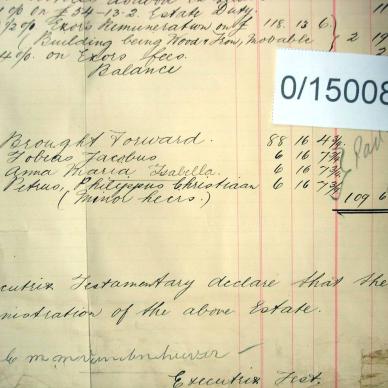 1% on £34.13.2 Estate Duty.
½% Exors Remuneration on £ 118 13 6
(Building being Wood & Iron, Movable 2 19
4% on Exors fees.
Balance
0/15008
Brought Forward. 88 16 4¾
Tobias Jacobus 6 16 7¾
Anna Maria Isabella. 6 16 7¾
Petrus, Philippus Christiaan 6 16 7¾
(Minor heirs.) 109 6
ecutrix Testamentary declare that the
nistration of the above Estate.
Executrix Test.